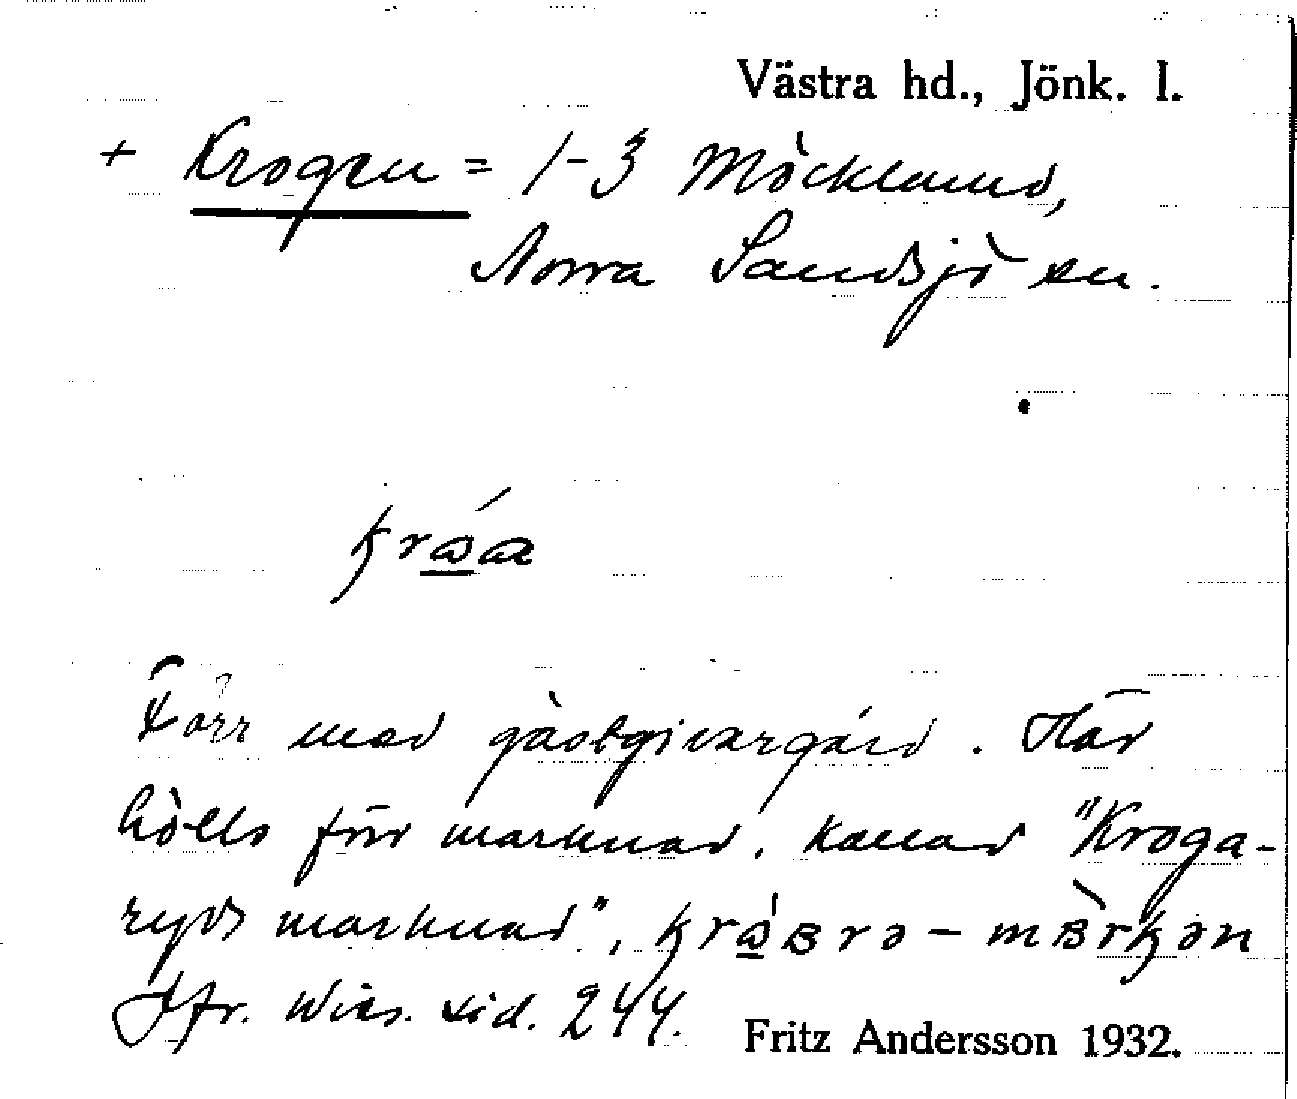 Västra hd., Jönk. l.
+ Krogen = 1-3 Möcklamo,
Norra Sandsjö sn.
Förr med gästgivargård. Här
hölls förr marknad, kallad "Kroga-
ryds marknad",
Jfr. Wies. sid. 244.
Fritz Andersson 1932.